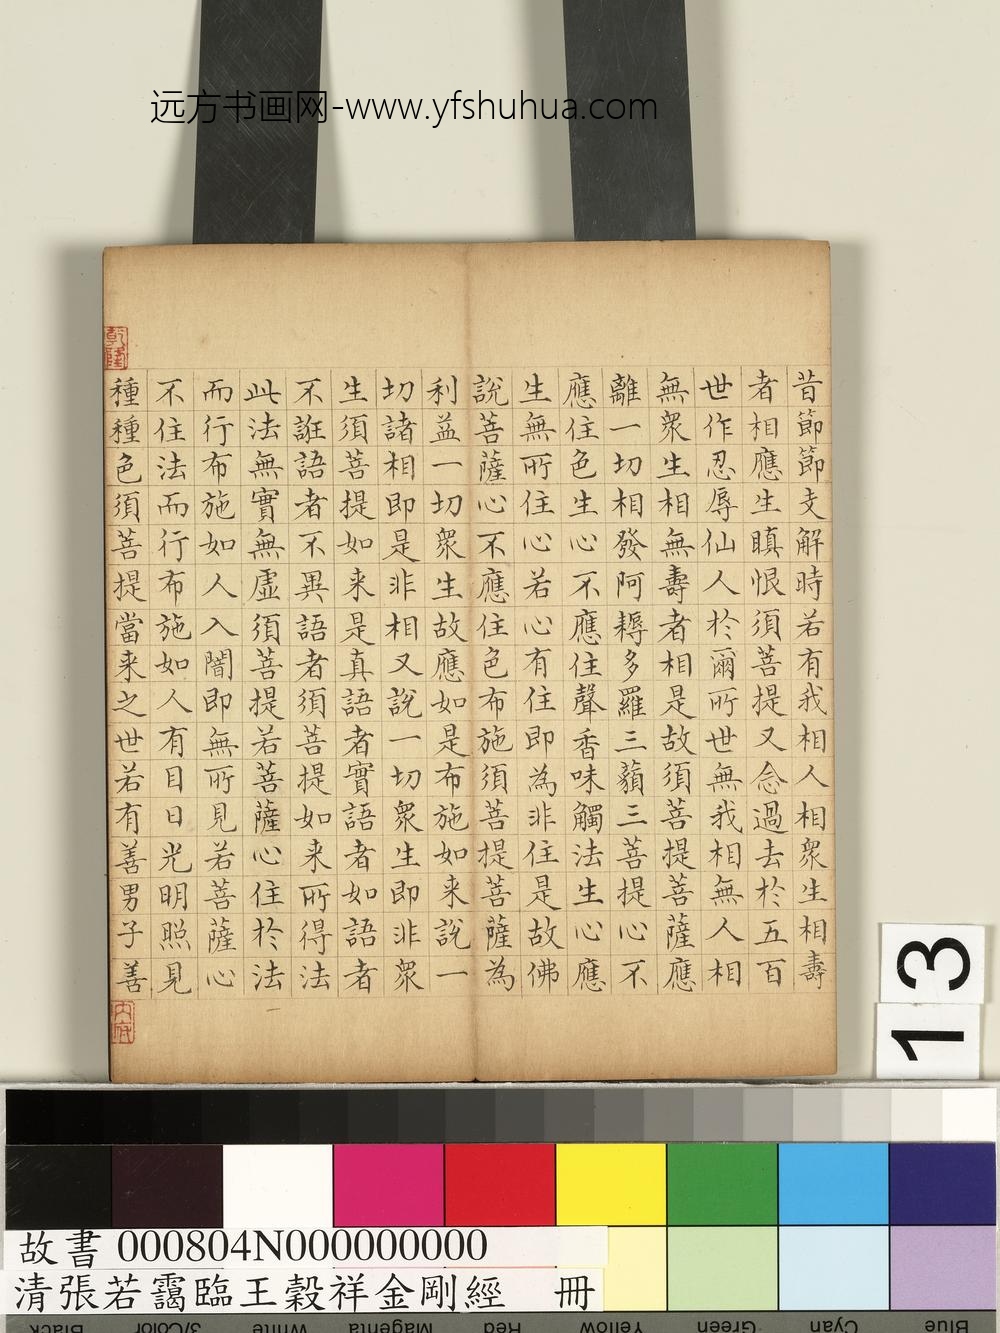 远方书画网-www.yfshuhua.com
昔節節支解時若有我相人相衆生相壽
者相應生瞋恨須菩提又念過去於五百
世作忍辱仙人於爾所世無我相無人相
無衆生相無壽者相是故須菩提菩薩應
離一切相發阿耨多羅三藐三菩提心不
應住色生心不應住聲香味觸法生心應
生無所住心若心有住即為非住是故佛
說菩薩心不應住色布施須菩提菩薩為
利益一切衆生故應如是布施如来說一
切諸相即是非相又說一切衆生即非衆
生須菩提如来是真語者實語者如語者
不誑語者不異語者須菩提如来所得法
此法無實無虛須菩提若菩薩心住於法
而行布施如人入闇即無所見若菩薩心
不住法而行布施如人有目日光明照見
種種色須菩提當来之世若有善男子善
乾隆
內府
13
故書 000804N000000000
清張若靄臨王穀祥金剛經 冊
Black 3/Color White Magenta Red Yellow Green Cyan Blue